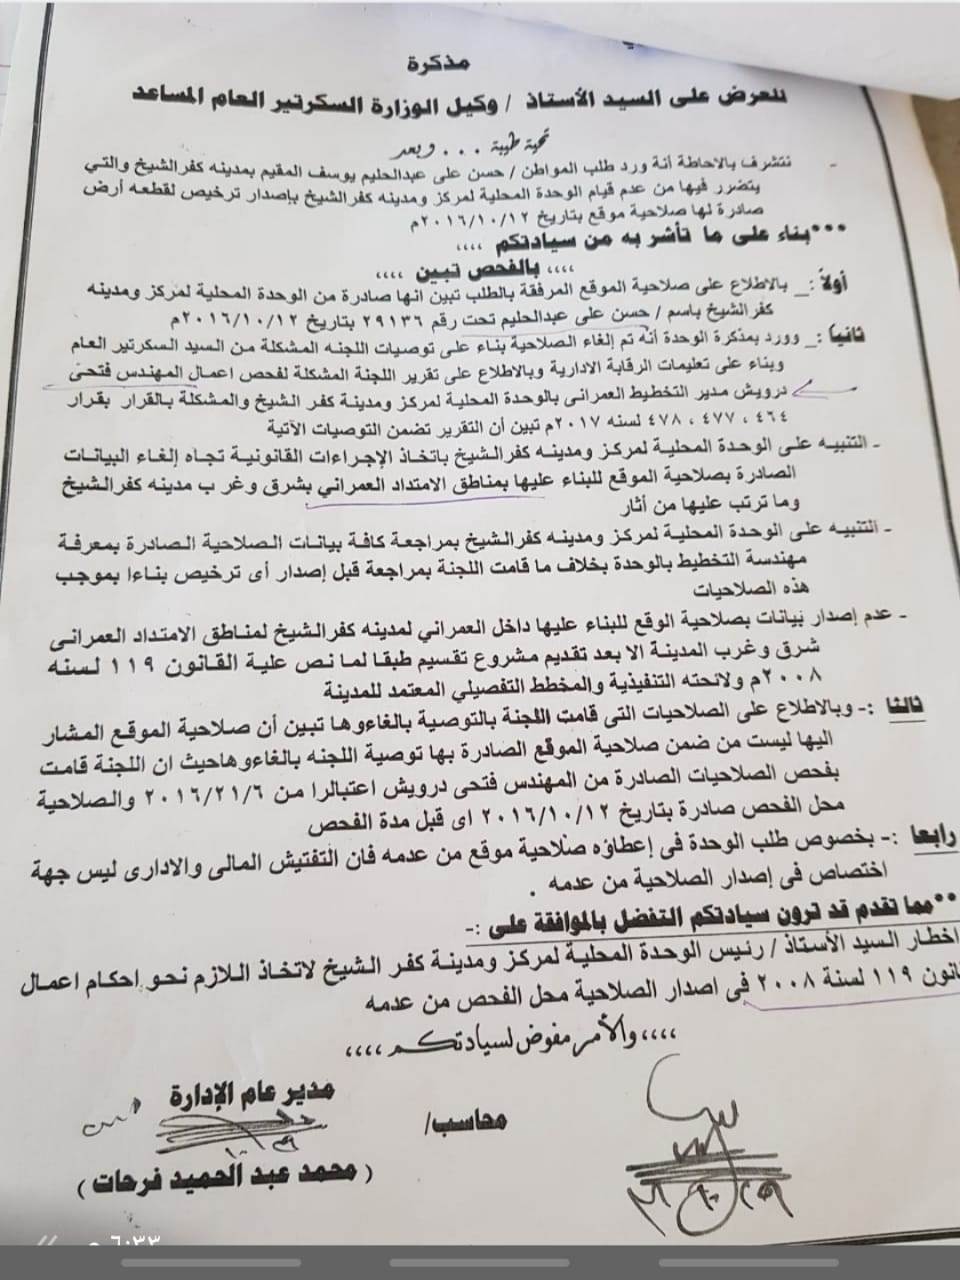 مذكرة
للعرض على السيد الأستاذ / وكيل الوزارة السكرتير العام المساعد
تحية طيبة ... وبعد
- نتشرف بالاحاطة أنة ورد طلب المواطن / حسن على عبدالحليم يوسف المقيم بمدينه كفرالشيخ والتي
يتضرر فيها من عدم قيام الوحدة المحلية لمركز ومدينه كفرالشيخ بإصدار ترخيص لقطعه أرض
صادرة لها صلاحية موقع بتاريخ ٢٠١٦/١٠/١٢م
***بناء على ما تأشر به من سيادتكم ،،،،
،،،، بالفحص تبين ،،،،
أولاً :_ بالاطلاع على صلاحية الموقع المرفقة بالطلب تبين انها صادرة من الوحدة المحلية لمركز ومدينه
كفرالشيخ باسم / حسن على عبدالحليم تحت رقم ٢٩١٣٦ بتاريخ ٢٠١٦/١٠/١٢م
ثانياً :_ وورد بمذكرة الوحدة أنه تم إلغاء الصلاحية بناء على توصيات اللجنه المشكلة من السيد السكرتير العام
وبناء على تعليمات الرقابة الادارية وبالاطلاع على تقرير اللجنة المشكلة لفحص اعمال المهندس فتحى
درويش مدير التخطيط العمرانى بالوحدة المحلية لمركز ومدينة كفر الشيخ والمشكلة بالقرار بقرار
٤٦٤ ، ٤٧٧ ، ٤٧٨ لسنه ٢٠١٧م تبين أن التقرير تضمن التوصيات الآتية
- التنبيه على الوحدة المحلية لمركز ومدينه كفرالشيخ باتخاذ الإجراءات القانونية تجاه إلغاء البيانات
الصادرة بصلاحية الموقع للبناء عليها بمناطق الامتداد العمراني بشرق وغر ب مدينه كفرالشيخ
وما ترتب عليها من أثار
- التنبيه على الوحدة المحلية لمركز ومدينه كفرالشيخ بمراجعة كافة بيانات الصلاحية الصادرة بمعرفة
مهندسة التخطيط بالوحدة بخلاف ما قامت اللجنة بمراجعة قبل إصدار أى ترخيص بناءا بموجب
هذه الصلاحيات
- عدم إصدار بيانات بصلاحية الوقع للبناء عليها داخل العمراني لمدينه كفرالشيخ لمناطق الامتداد العمرانى
شرق وغرب المدينة الا بعد تقديم مشروع تقسيم طبقا لما نص علية القانون ١١٩ لسنه
٢٠٠٨م ولائحته التنفيذية والمخطط التفصيلي المعتمد للمدينة
ثالثا :- وبالاطلاع على الصلاحيات التى قامت اللجنة بالتوصية بالغاءوها تبين أن صلاحية الموقع المشار
اليها ليست من ضمن صلاحية الموقع الصادرة بها توصية اللجنه بالغاءوهاحيث ان اللجنة قامت
بفحص الصلاحيات الصادرة من المهندس فتحى درويش اعتبالرا من ٢٠١٦/٢١/٦ والصلاحية
محل الفحص صادرة بتاريخ ٢٠١٦/١٠/١٢ اى قبل مدة الفحص
رابعا :- بخصوص طلب الوحدة فى إعطاؤه صلاحية موقع من عدمه فان التفتيش المالى والادارى ليس جهة
اختصاص فى إصدار الصلاحية من عدمه .
**مما تقدم قد ترون سيادتكم التفضل بالموافقة على :-
اخطار السيد الأستاذ / رئيس الوحدة المحلية لمركز ومدينة كفر الشيخ لاتخاذ اللازم نحو احكام اعمال
انون ١١٩ لسنة ٢٠٠٨ فى اصدار الصلاحية محل الفحص من عدمه
،،،، والأمر مفوض لسيادتكم ،،،،
مدير عام الإدارة
محاسب/
( محمد عبد الحميد فرحات )
٦:٣٣